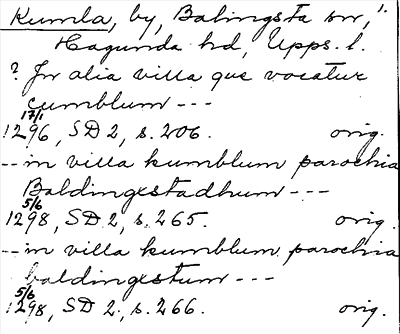 Kumla, by, Balingsta sn, 1.
Hagunda hd, Upps. l.
? In alia villa que vocatur
cumblum ---
17/1
1296, SD 2, s. 206. orig.
-- in villa kumblum parochia
Baldingestadhum ---
5/6
1298, SD 2, s. 265. orig.
-- in villa kumblum parochia
baldingestum ---
5/6
1298, SD 2, s. 266. orig.